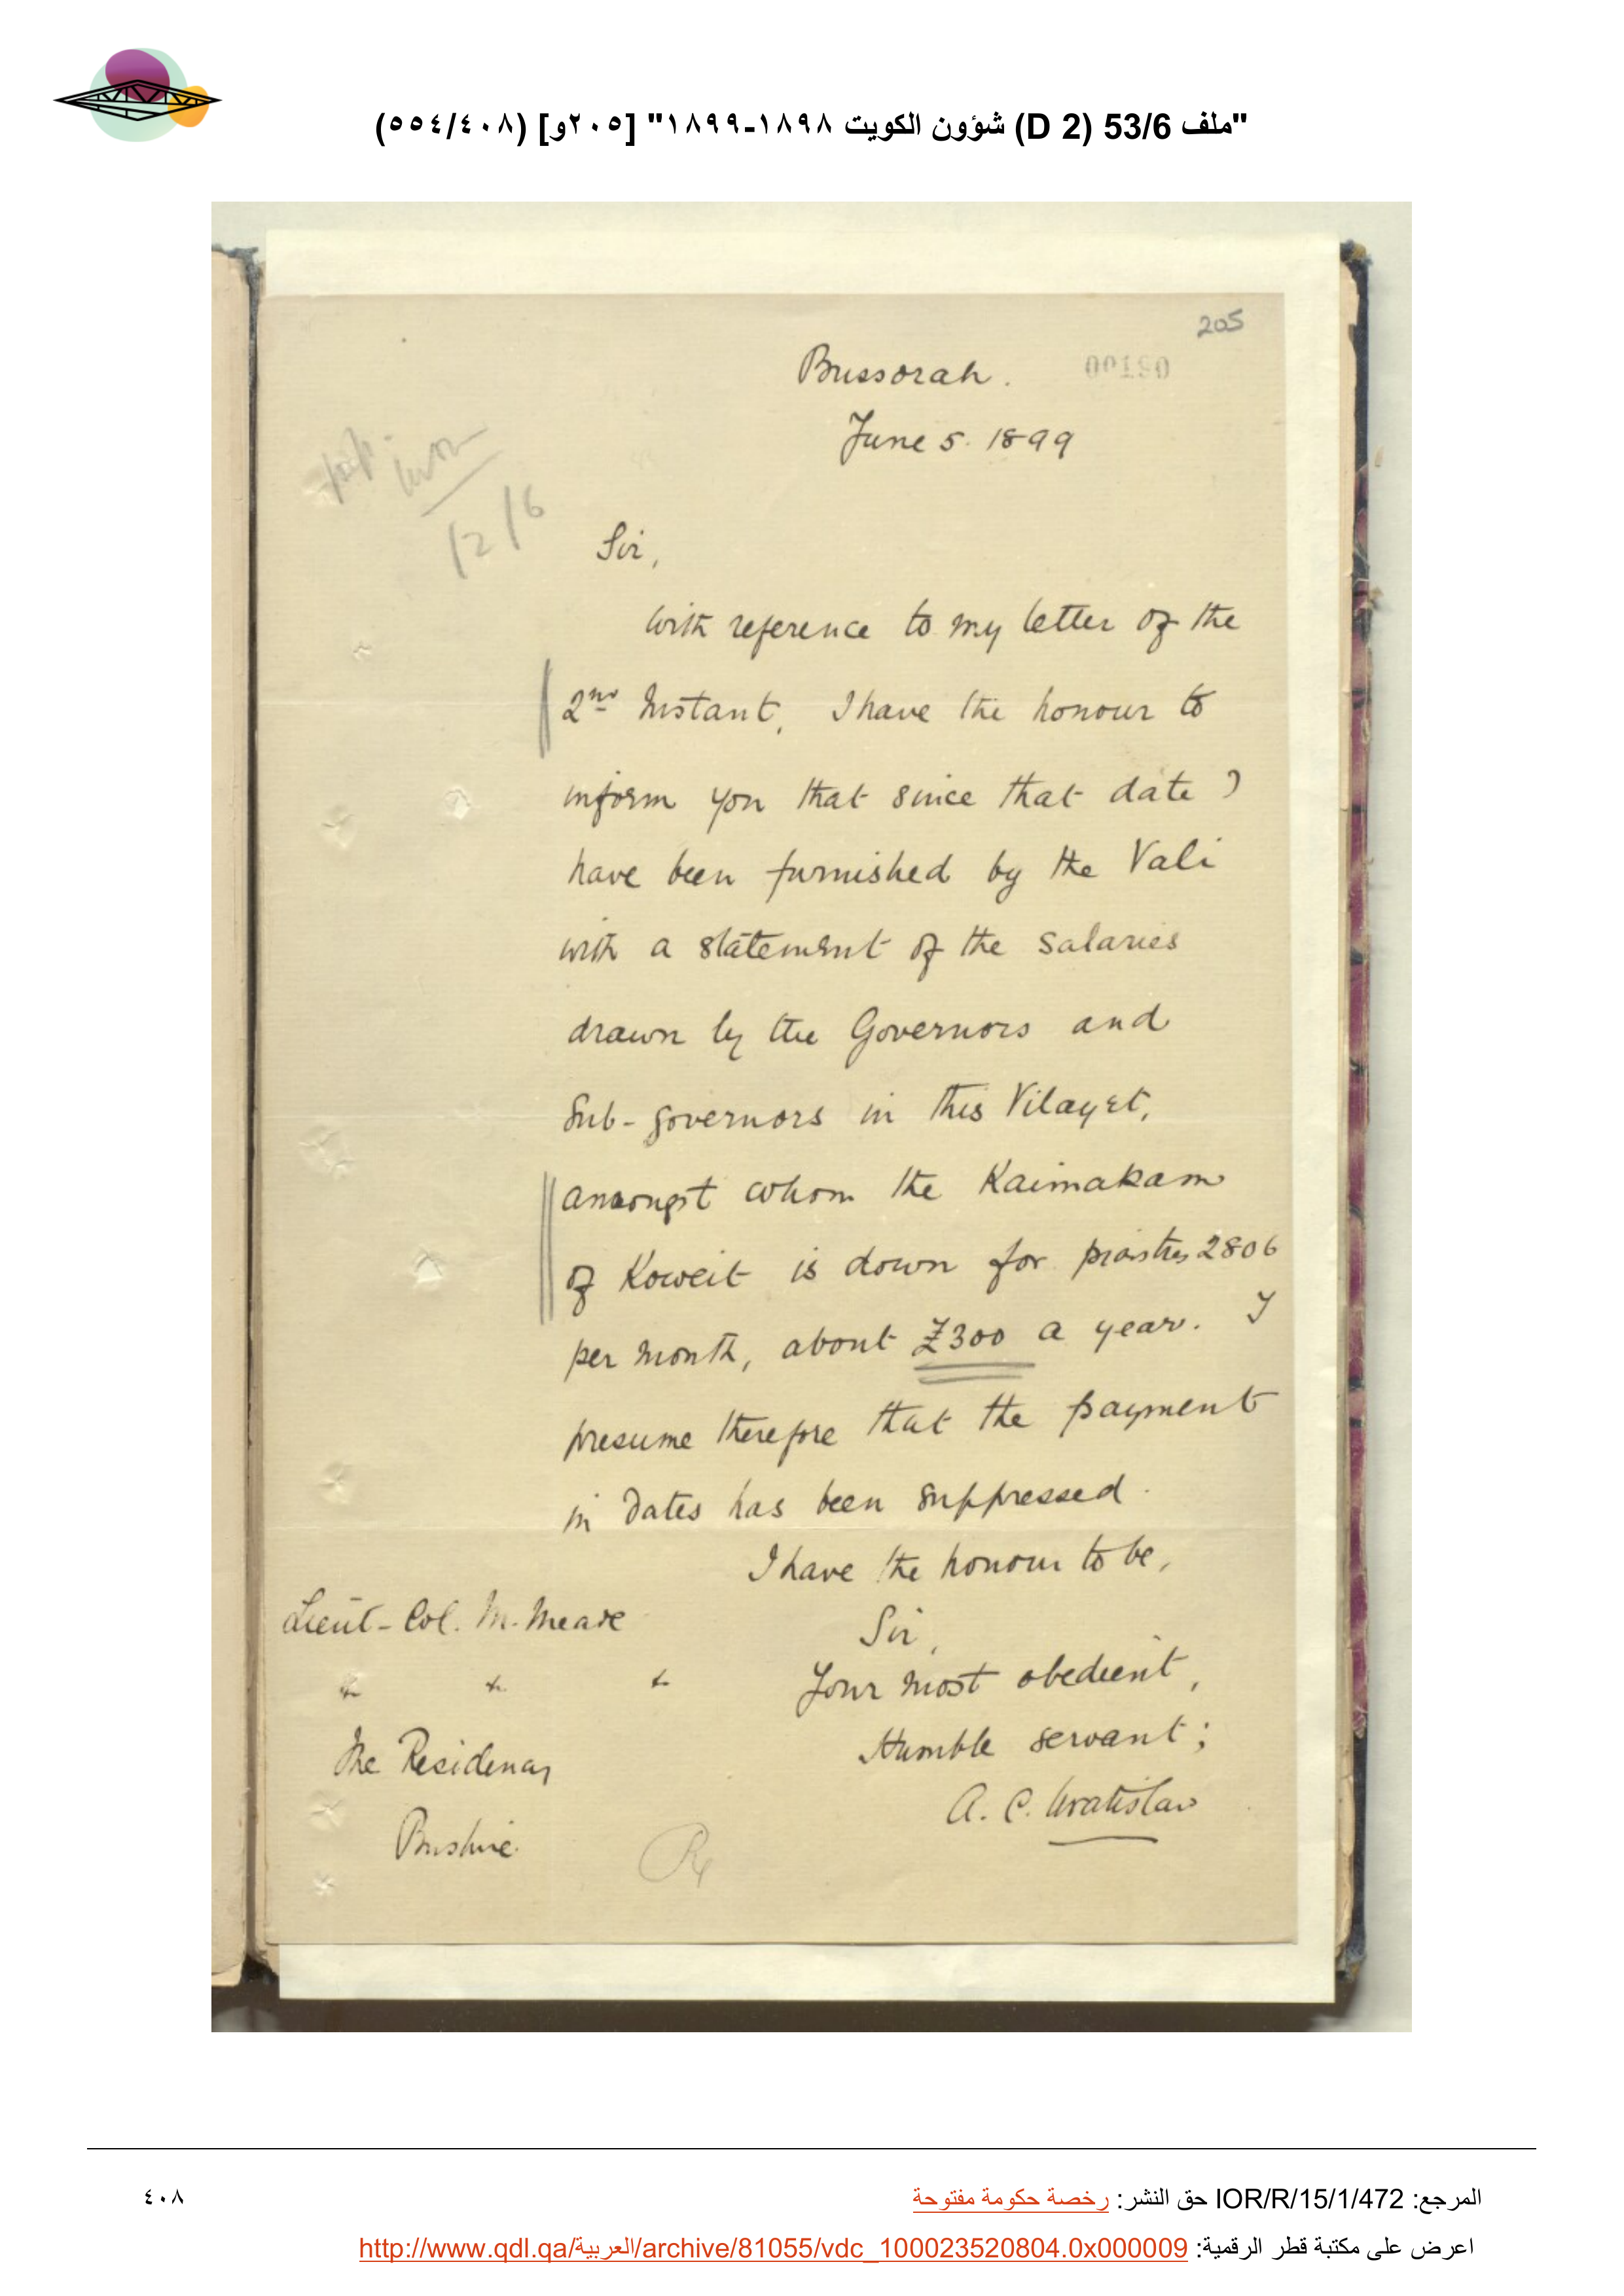 "ملف 53/6 (D 2) شؤون الكويت ١٨٩٨-١٨٩٩" [٢٠٥و] (٥٥٤/٤٠٨)
205
00190
Bussorah.
June 5. 1899
12/6
Sir,
With reference to my letter of the
2nd Instant, I have the honour to
inform you that since that date I
have been furnished by the Vali
with a statement of the salaries
drawn by the Governors and
Sub-governors in this Vilayet,
amongst whom the Kaimakam
of Koweit is down for piastres 2806
per month, about £300 a year. I
presume therefore that the payment
in dates has been suppressed.
I have the honour to be,
Sir,
Your most obedient,
Humble servant;
A. C. Wratislaw
Lieut-Col. M. Meade
& & &
The Residency
Bushire.
المرجع: IOR/R/15/1/472 حق النشر: رخصة حكومة مفتوحة
٤٠٨
اعرض على مكتبة قطر الرقمية: http://www.qdl.qa/العربية/archive/81055/vdc_100023520804.0x000009